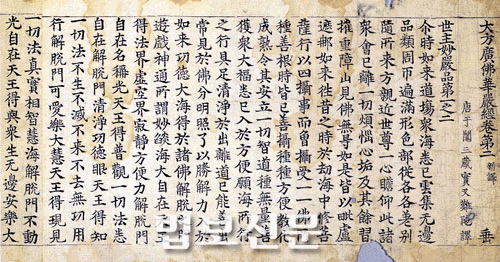 大方廣佛華嚴經卷第二 新譯 垂
唐于闐三藏實叉難陁譯
世主妙嚴品第一之二
尒時如來道場衆海悉已雲集无邊
品類周帀遍滿形色部從各各差別
隨所來方親近世尊一心瞻仰此諸
衆會已離一切煩惱心垢及其餘習
摧重障山見佛無㝵如是皆以毗盧
遮那如來往昔之時於劫海中修菩
薩行以四攝事而曾攝受一一佛所
種善根時皆已善攝種種方便教化
成熟令其安立一切智道種無量善
獲衆大福悉已入於方便願海所行
之行具足清淨於出離道已能善出
常見於佛分明照了以勝解力入於
如來功德大海得於諸佛解脫之門
遊戲神通所謂妙燄海大自在天王
得法界虛空界寂靜方便力解脫門
自在名稱光天王得普觀一切法悉
自在解脫門清淨功德眼天王得知
一切法不生不滅不來不去無功用
行解脫門可愛樂大慧天王得現見
一切法真實相智慧海解脫門不動
光自在天王得與衆生无邊安樂大
법보신문